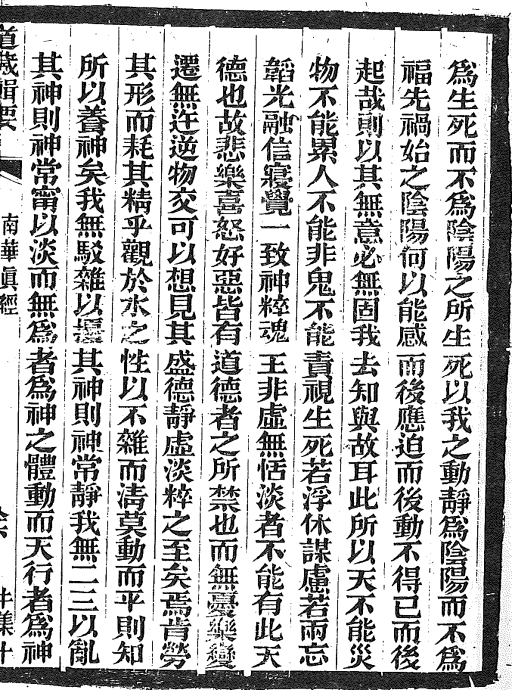 為生死而不為陰陽之所生死以我之動靜為陰陽而不為
福先禍始之陰陽何以能感而後應迫而後動不得已而後
起哉則以其無意必無固我去知與故耳此所以天不能災
物不能累人不能非鬼不能責視生死若浮休謀慮若兩忘
韜光融信寢覺一致神粹魂王非虛無恬淡者不能有此天
德也故悲樂喜怒好惡皆有道德者之所禁也而無憂樂變
遷無迕逆物交可以想見其盛德靜虛淡粹之至矣焉肯勞
其形而耗其精乎觀於水之性以不雜而清莫動而平則知
所以養神矣我無駁雜以擾其神則神常靜我無二三以亂
其神則神常甯以淡而無為者為神之體動而天行者為神
道藏輯要 南華真經 牛集十